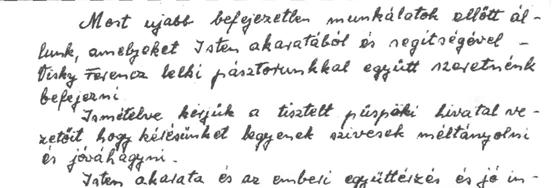 Most ujabb befejezetlen munkálatok ellőtt ál-
lunk, amelyeket Isten akaratából és segitségével -
Visky Ferencz lelki pásztorunkkal együtt szeretnénk
befejezni
Ismételve kérjük a tisztelt püspöki hivatal ve-
zetőit hogy kérésünket legyenek szivesek méltányolni
és jóváhagyni.
Isten akarata és az emberi együttérzés és jó in-